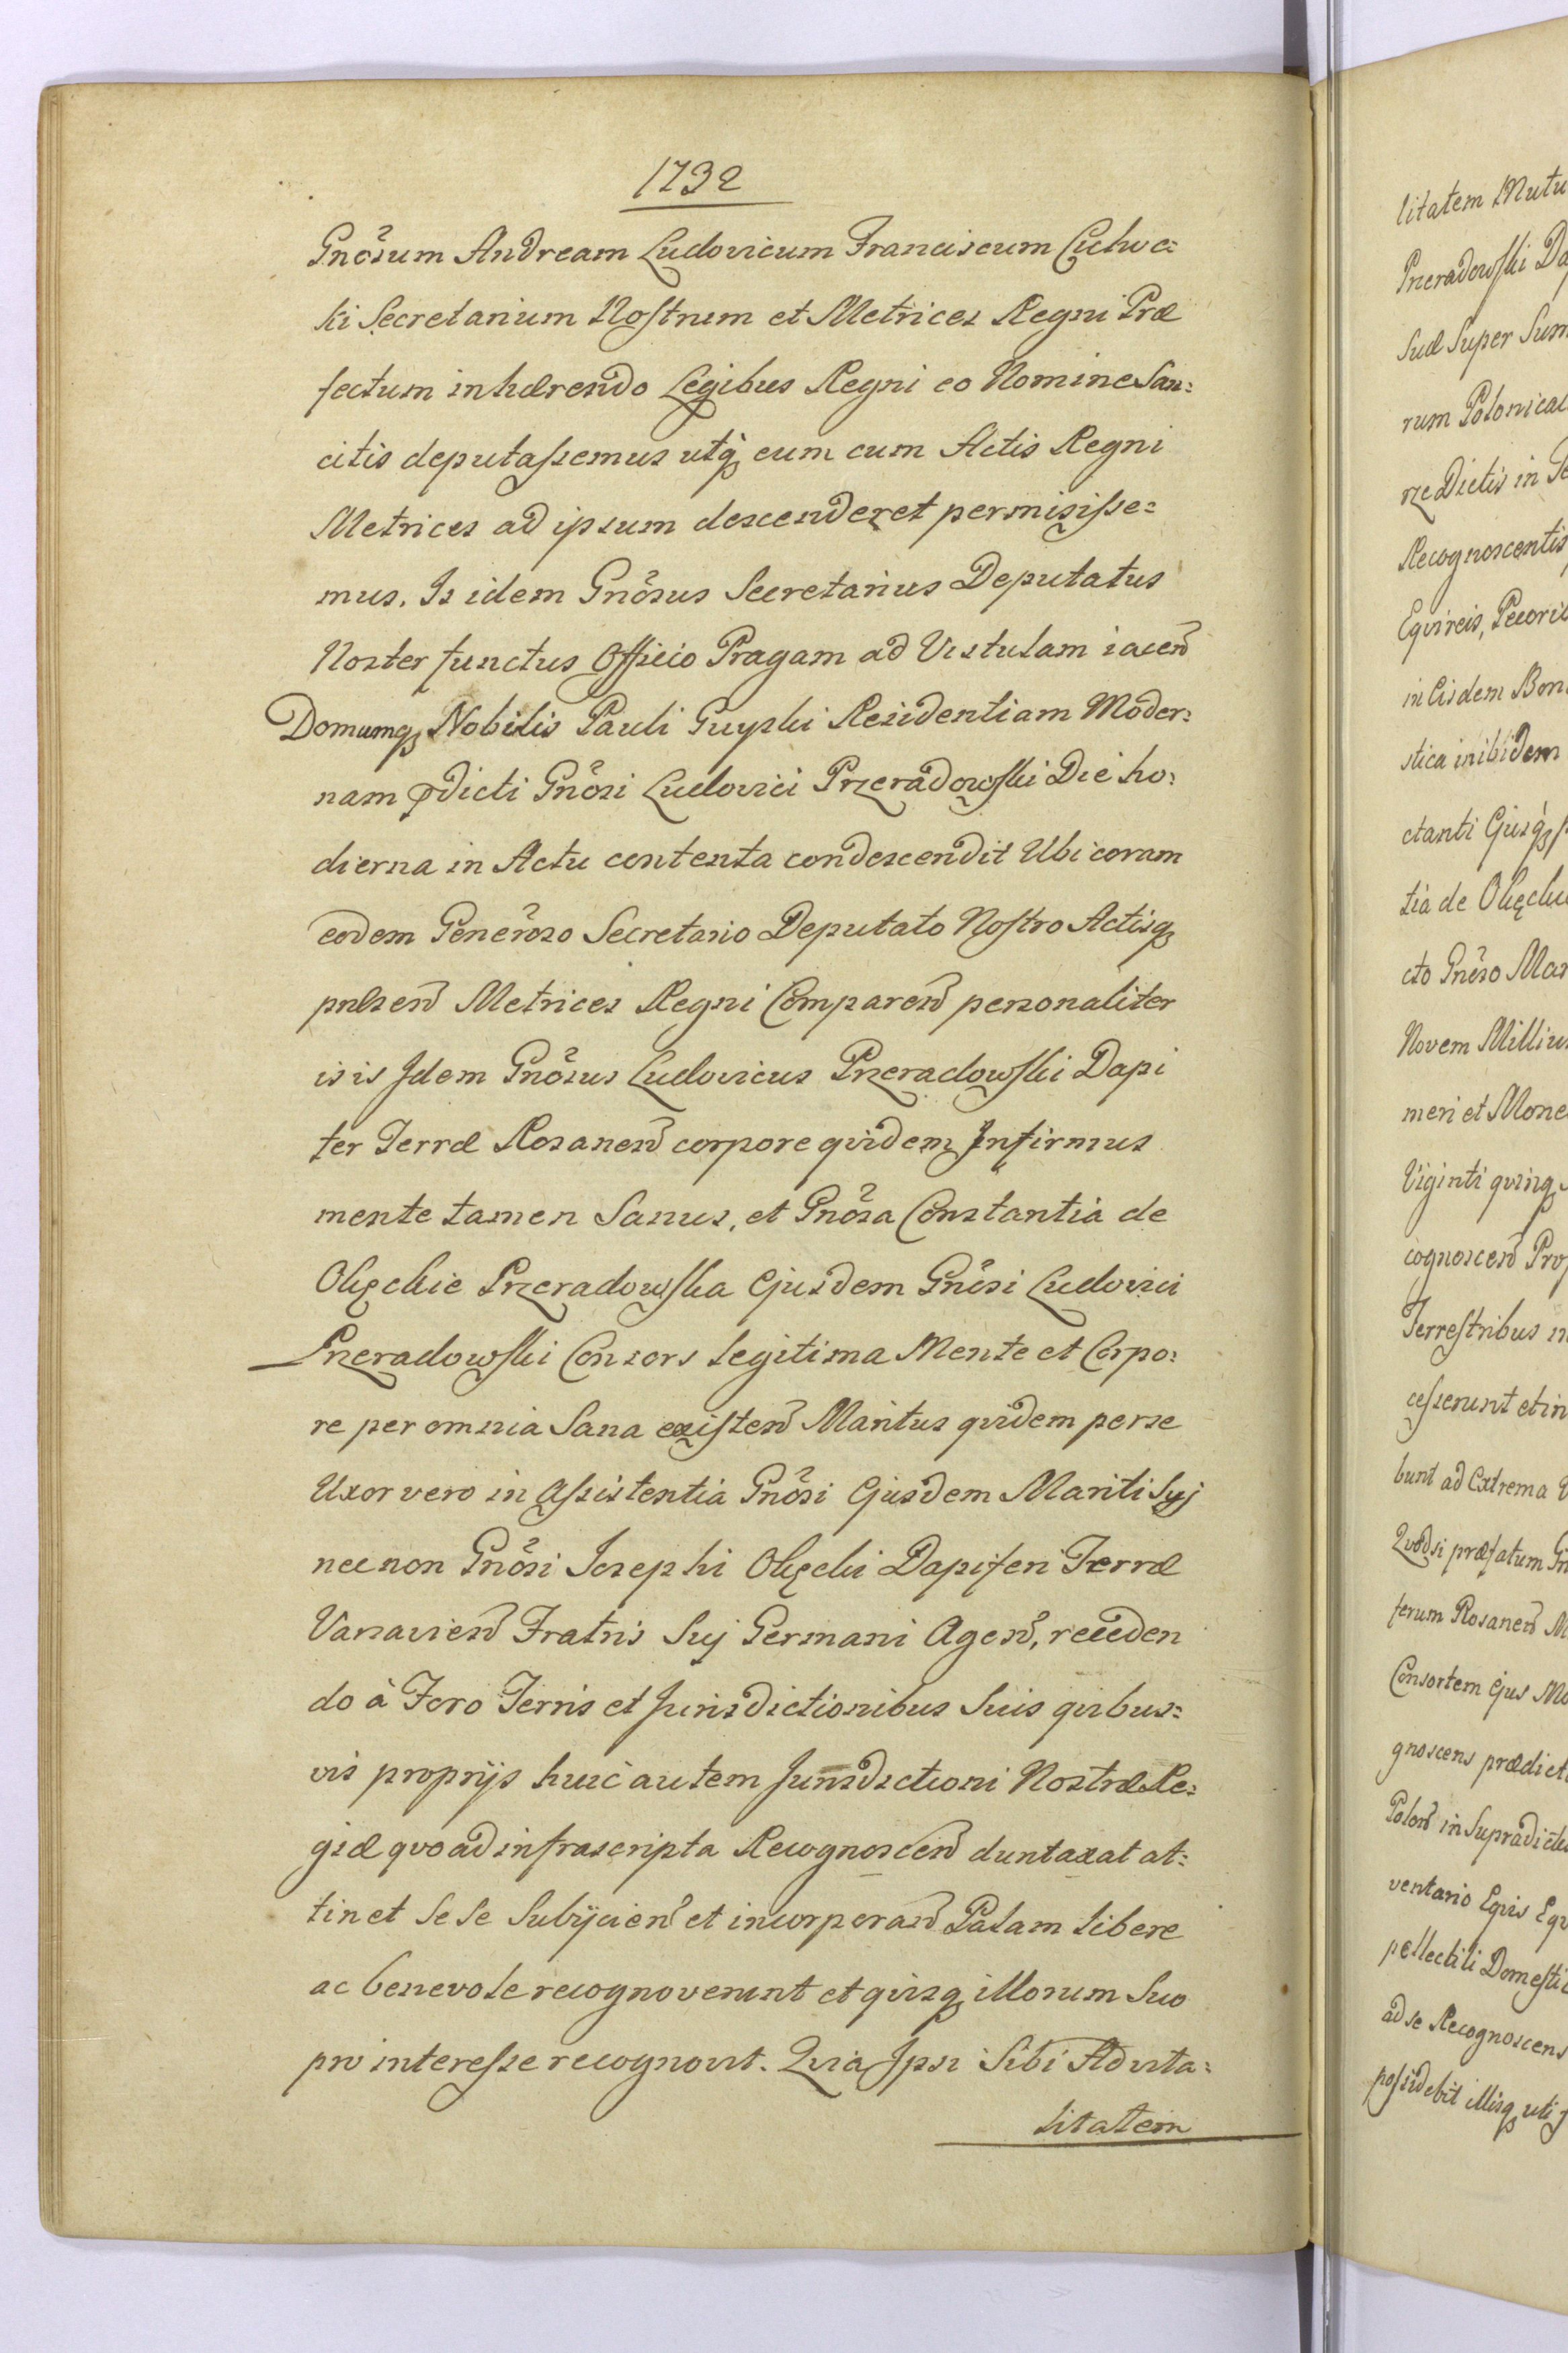 1732
Gnõsum Andream Ludovicum Franciscum Cichoc=
ki Secretarium Nostrum et Metrices Regni Præ
fectum inhærendo Legibus Regni eo Nomine San=
citis deputassemus utq eum cum Actis Regni
Metrices ad ipsum descenderet permisisse=
mus. Is idem Gnõsus Secretarius Deputatus
Noster functus Officio Pragam ad Vistulam iacen
Domumq Nobilis Pauli Residentiam Moder=
nam pdicti Gnõsi Ludovici Przeradowski Die ho=
dierna in Actu contenta condescendit Ubi coram
eodem Generoso Secretario Deputato Nostro Actisq
pnlsen Metrices Regni Comparen personaliter
is is Idem Gnõsus Ludovicus Przeradowski Dapi
fer Terræ Rosanen corpore quidem Infirmus
mente tamen Sanus, et Gnõsa Constantia de
Olęckie Przeradowska Ejusdem Gnõsi Ludovici
Przeradowski Consors legitima Mente et Corpo=
re per omnia Sana existen Maritus quidem per se
Uxor vero in Assistentia Gnõsi Ejusdem Mariti Suj
nec non Gnõsi Josephi Olęcki Dapiferi Terræ
Varsavien Fratris Suj Germani Agen, receden
do à Foro Terris et Jurisdictionibus Suis quibus=
vis proprijs huic autem Jurisdictioni Nostræ Re=
giæ quo ad infrascripta Recognoscen duntaxat at=
tinet se se Subijcien et incorporan Palam libere
ac benevole recognoverunt et quisq illorum Suo
pro interesse recognovit. Quia Ipsi Sibi Advita=
litatem
litatem Mutu
Przeradowski Da
suæ Super Sum
rum Polonical
rze Dictis in
Recognoscentis
Equireis, Pecorib
in Eisdem Bon
stica inibidem
ctanti Ejusq
tia de Olęckie
cto Gnõso Mar
Novem Milliu
meri et Mone
Viginti quinq
cognoscen Pro
Terrestribus
cesserunt et in
bunt ad Extrema
Quod si præfatum Gn
ferum Rosanen M
Consortem Ejus Mo
gnoscens prædict
Polon in Supradict
ventario Equis Equ
pellectili Domestic
ad se Recognoscens
possidebit illisq uti